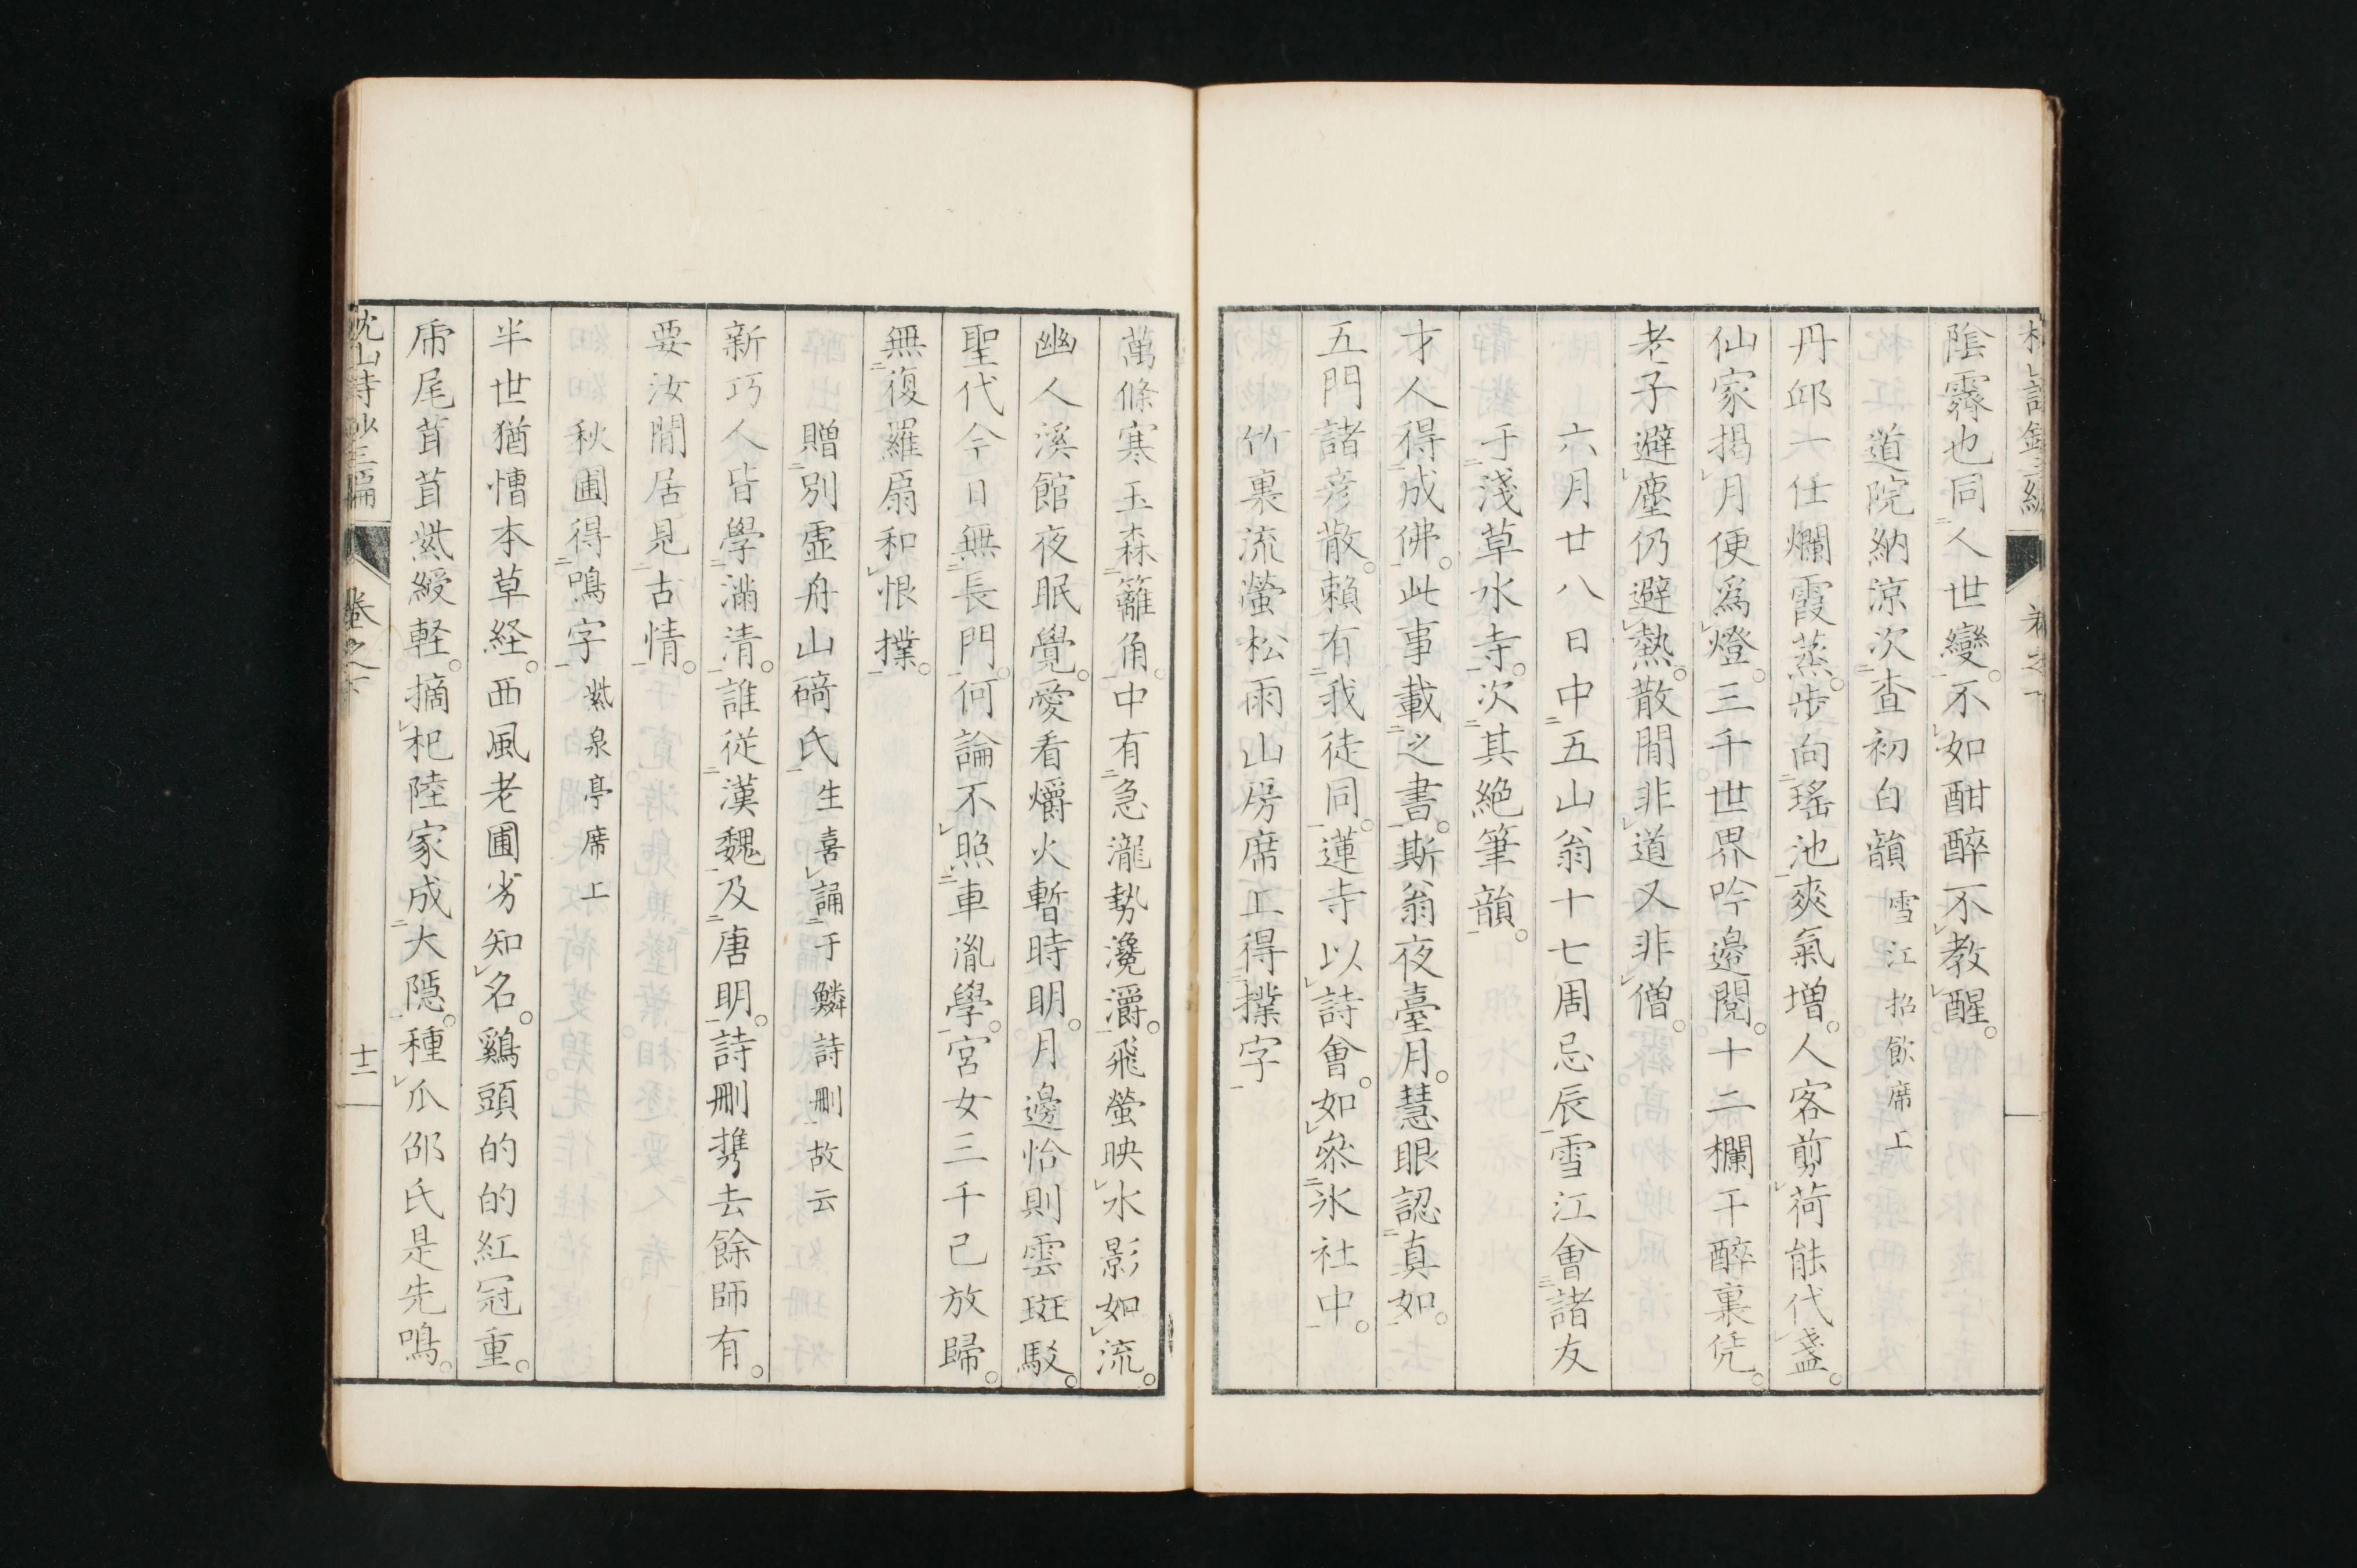 陰霽也同人世變。不如酣醉不教醒。
道院納涼次査初白韻 雪江招飲席上
丹邱一任爛霞蒸。步向瑤池爽氣增。人客剪荷能代盞。
仙家揭月便爲燈。三千世界吟邊閲。十二欄干醉裏凭。
老子避塵仍避熱。散閒非道又非僧。
六月廿八日中五山翁十七周忌辰雪江會諸友
于淺草水寺。次其絶筆韻。
才人得成佛。此事載之書。斯翁夜臺月。慧眼認真如。
五門諸彦散。賴有我徒同。蓮寺以詩會。如叅氷社中。
竹裏流螢松雨山房席上得撲字
萬條寒玉森籬角。中有急瀧勢瀺灂。飛螢映水影如流。
幽人溪館夜眠覺。愛看爝火暫時明。月邊恰則雲斑駁。
聖代今日無長門。何論不照車胤學。宮女三千已放歸。
無復羅扇和恨撲。
贈別虛舟山碕氏 生喜誦于鱗詩刪故云
新巧人皆學滿清。誰從漢魏及唐明。詩刪携去餘師有。
要汝閒居見古情。
秋圃得鳴字 紫泉亭席上
半世猶慒本草経。西風老圃劣知名。鷄頭的的紅冠重。
乕尾茸茸紫綬輕。摘杞陸家成大隱。種瓜邵氏是先鳴。
枕山詩鈔三編 卷之下 十二